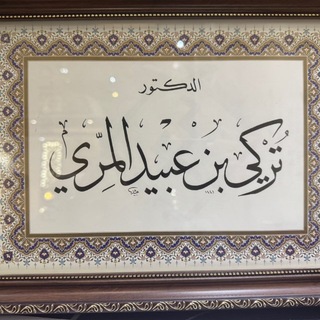 الدكتور
تُركي بن عبيد المرّي